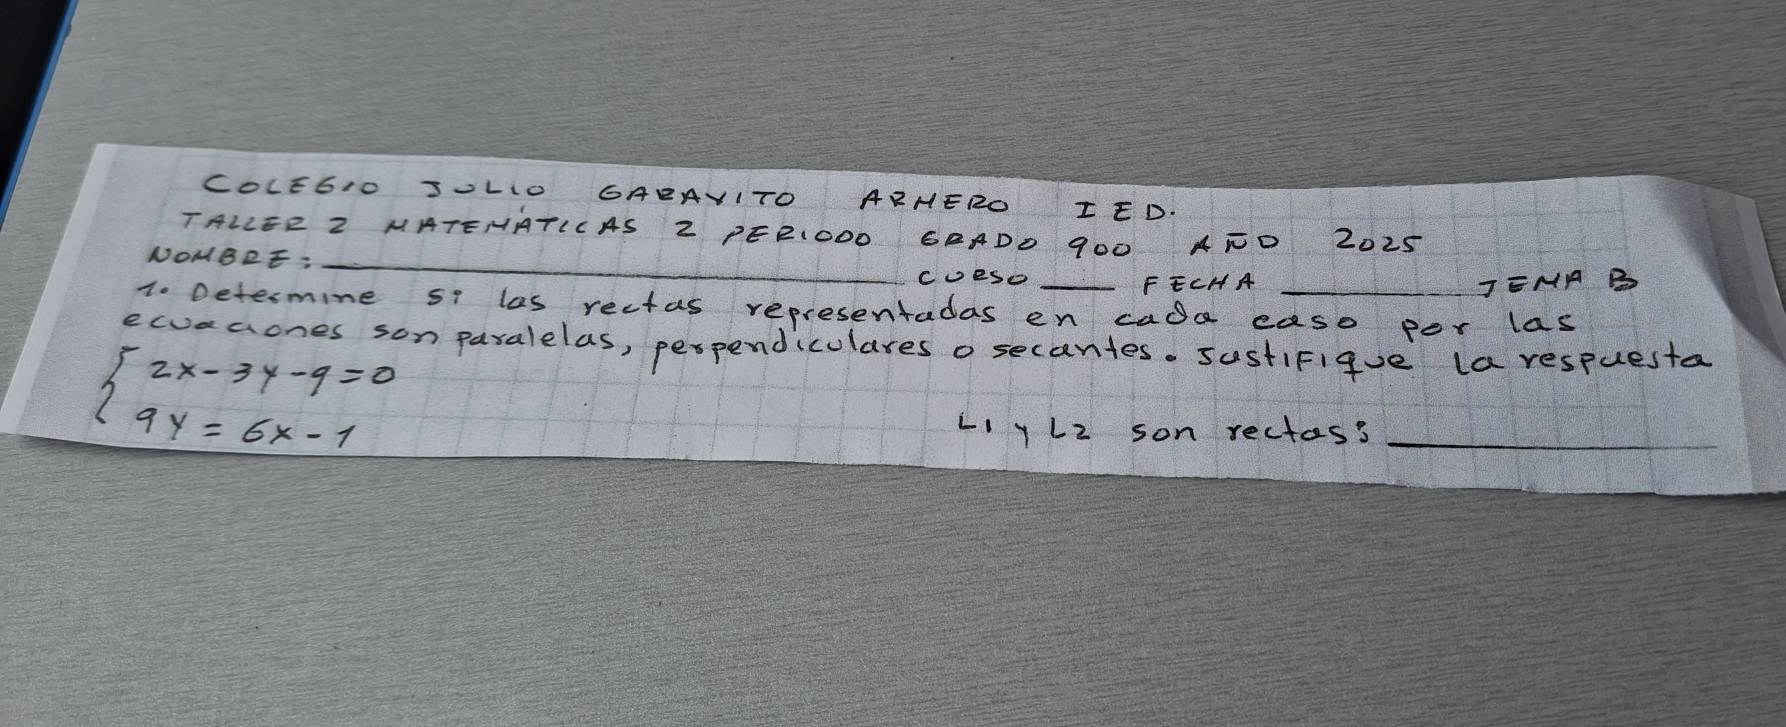 COLEGIO JULIO GARAVITO ARMERO IED.
TALLER 2 MATEMÁTICAS 2 PERIODO GRADO 900 AÑO 2025
NOMBRE: ____________ CURSO ____ FECHA ________ TEMA B
1. Determine si las rectas representadas en cada caso por las
ecuaciones son paralelas, perpendiculares o secantes. Justifique la respuesta
2x-3y-9=0
9y=6x-1 L1 y L2 son rectas: ____________